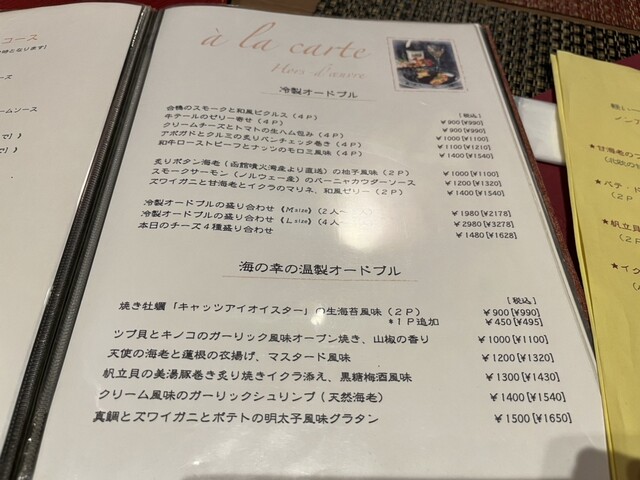 コース
à la carte
Hors d'œuvre
冷製オードブル
[税込]
合鴨のスモークと和風ピクルス（４Ｐ） ￥900[¥990]
牛テールのゼリー寄せ（４Ｐ） ￥900[¥990]
クリームチーズとトマトの生ハム包み（４Ｐ） ￥1000[¥1100]
アボガドとクルミの炙りパンチェッタ巻き（４Ｐ） ￥1100[¥1210]
和牛ローストビーフとナッツのモロミ風味（４Ｐ） ￥1400[¥1540]
炙りボタン海老（函館噴火湾産より直送）の柚子風味（２Ｐ） ￥1000[¥1100]
スモークサーモン（ノルウェー産）のバーニャカウダーソース ￥1200[¥1320]
ズワイガニと甘海老とイクラのマリネ、和風ゼリー（２Ｐ） ￥1400[¥1540]
冷製オードブルの盛り合わせ《Msize》（２人 ￥1980[¥2178]
冷製オードブルの盛り合わせ《Lsize》（４人 ￥2980[¥3278]
本日のチーズ４種盛り合わせ ￥1480[¥1628]
海の幸の温製オードブル
[税込]
焼き牡蠣「キャッツアイオイスター」の生海苔風味（２Ｐ） ￥900[¥990]
＊１Ｐ追加 ￥450[¥495]
ツブ貝とキノコのガーリック風味オーブン焼き、山椒の香り ￥1000[¥1100]
天使の海老と蓮根の衣揚げ、マスタード風味 ￥1200[¥1320]
帆立貝の美湯豚巻き炙り焼きイクラ添え、黒糖梅酒風味 ￥1300[¥1430]
クリーム風味のガーリックシュリンプ（天然海老） ￥1400[¥1540]
真鯛とズワイガニとポテトの明太子風味グラタン ￥1500[¥1650]